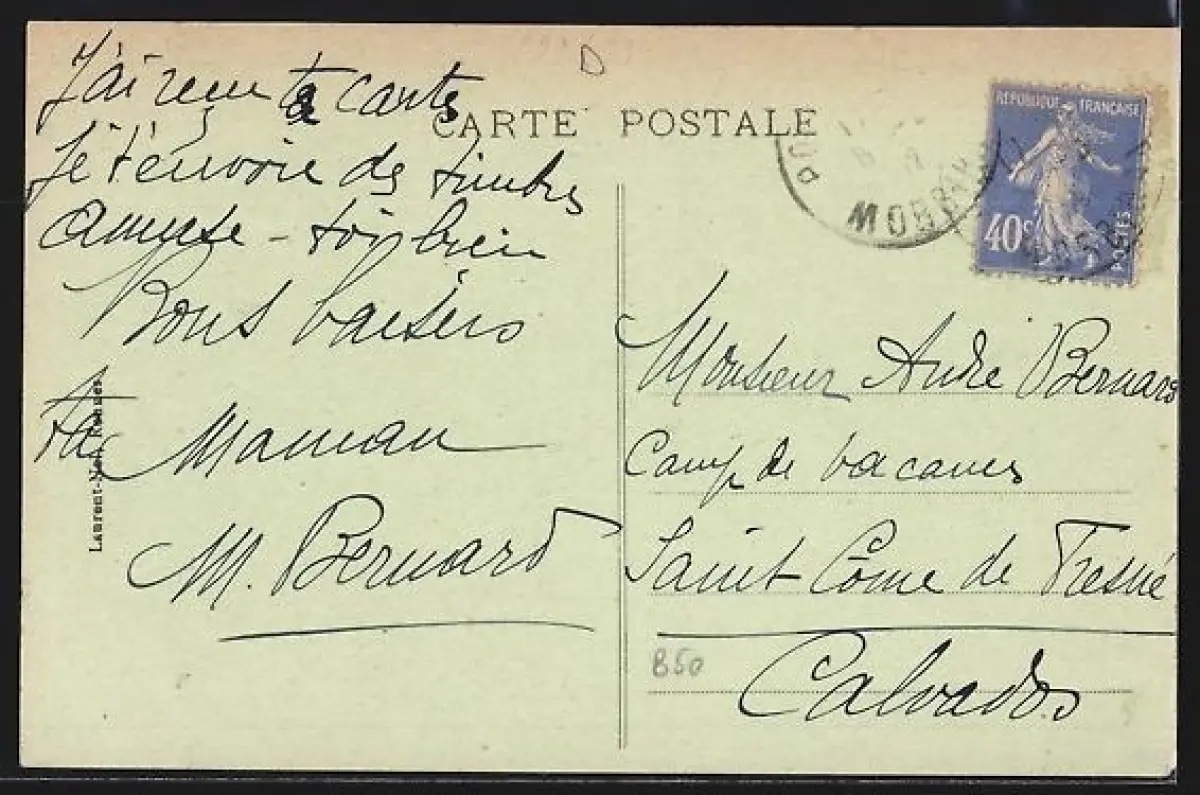 D
CARTE POSTALE
J'ai reçu ta carte
Je t'envoie des timbres
Amuse-toi bien
Bons baisers
ta Maman
M. Bernard
Laurent-Nel, Rennes
RÉPUBLIQUE FRANÇAISE
40c
POSTES
MORBIHAN
Monsieur André Bernard
Camp de vacances
Saint Côme de Fresné
Calvados
B50